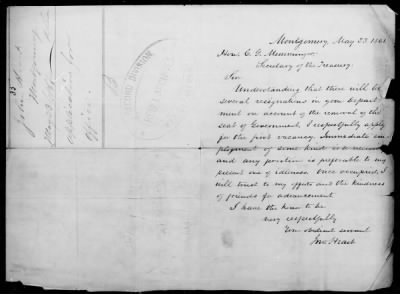 Montgomery, May 23. 1861.
Hon. C. G. Memminger,
Secretary of the Treasury.
Sir
Understanding that there will be
several resignations in your Depart-
ment on account of the removal of the
seat of Government, I respectfully apply
for the first vacancy. Immediate em-
ployment of some kind is a
and any position is preferable to my
present one of idleness. Once occupied, I
will trust to my efforts and the kindness
of friends for advancement.
I have the honor to be
very respectfully
Your obedient servant
Jno. Heart
33
John
Montgomery
for
Office.